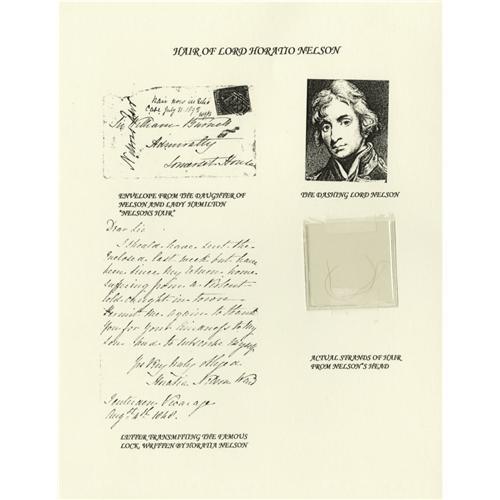 HAIR OF LORD HORATIO NELSON
Nelson's Hair
Hair now in this
Case July 11. 1873
Sir William Burnett
Admiralty
Somerset House
ENVELOPE FROM THE DAUGHTER OF
NELSON AND LADY HAMILTON
"NELSONS HAIR"
THE DASHING LORD NELSON
Dear Sir
I should have sent the
enclosed last week but have
been since my return home
suffering from a violent
cold caught in town
Permit me again to thank
you for your kindness to my
son and to subscribe myself
Yrs Very truly obliged
Horatia Nelson Ward
Tenterden Vicarage
Augst 4th 1848.
ACTUAL STRANDS OF HAIR
FROM NELSON'S HEAD
LETTER TRANSMITTING THE FAMOUS
LOCK, WRITTEN BY HORATIA NELSON